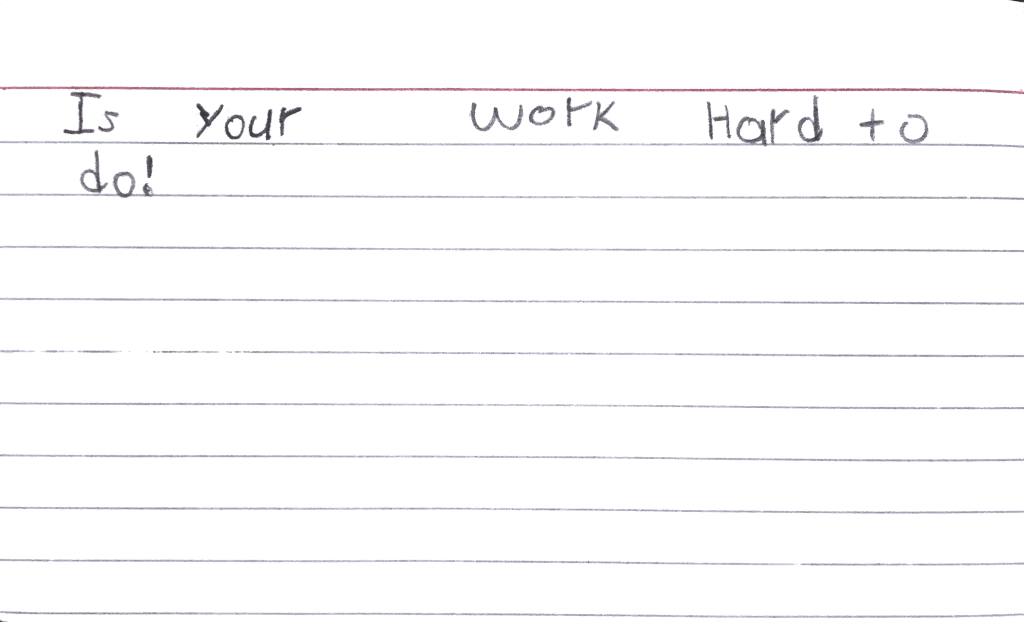 Is your work Hard to
do!